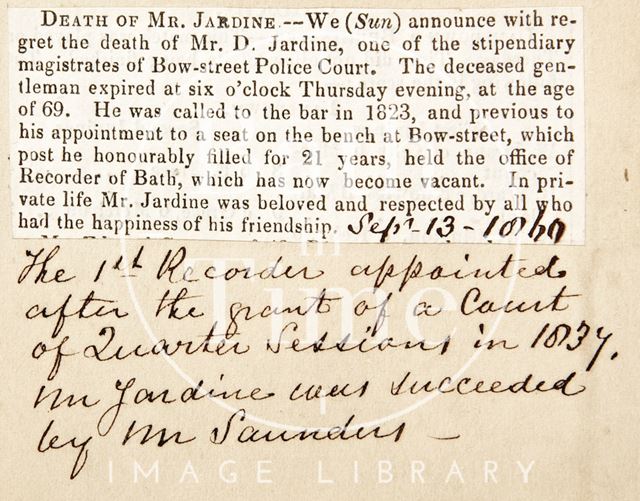 DEATH OF MR. JARDINE.—We (Sun) announce with re-
gret the death of Mr. D. Jardine, one of the stipendiary
magistrates of Bow-street Police Court. The deceased gen-
tleman expired at six o'clock Thursday evening, at the age
of 69. He was called to the bar in 1823, and previous to
his appointment to a seat on the bench at Bow-street, which
post he honourably filled for 21 years, held the office of
Recorder of Bath, which has now become vacant. In pri-
vate life Mr. Jardine was beloved and respected by all who
had the happiness of his friendship. Sept-13-1860
The 1st Recorder appointed
after the grant of a Court
of Quarter Sessions in 1837.
Mr Jardine was succeeded
by Mr Saunders —
Bath
in
Time
IMAGE LIBRARY